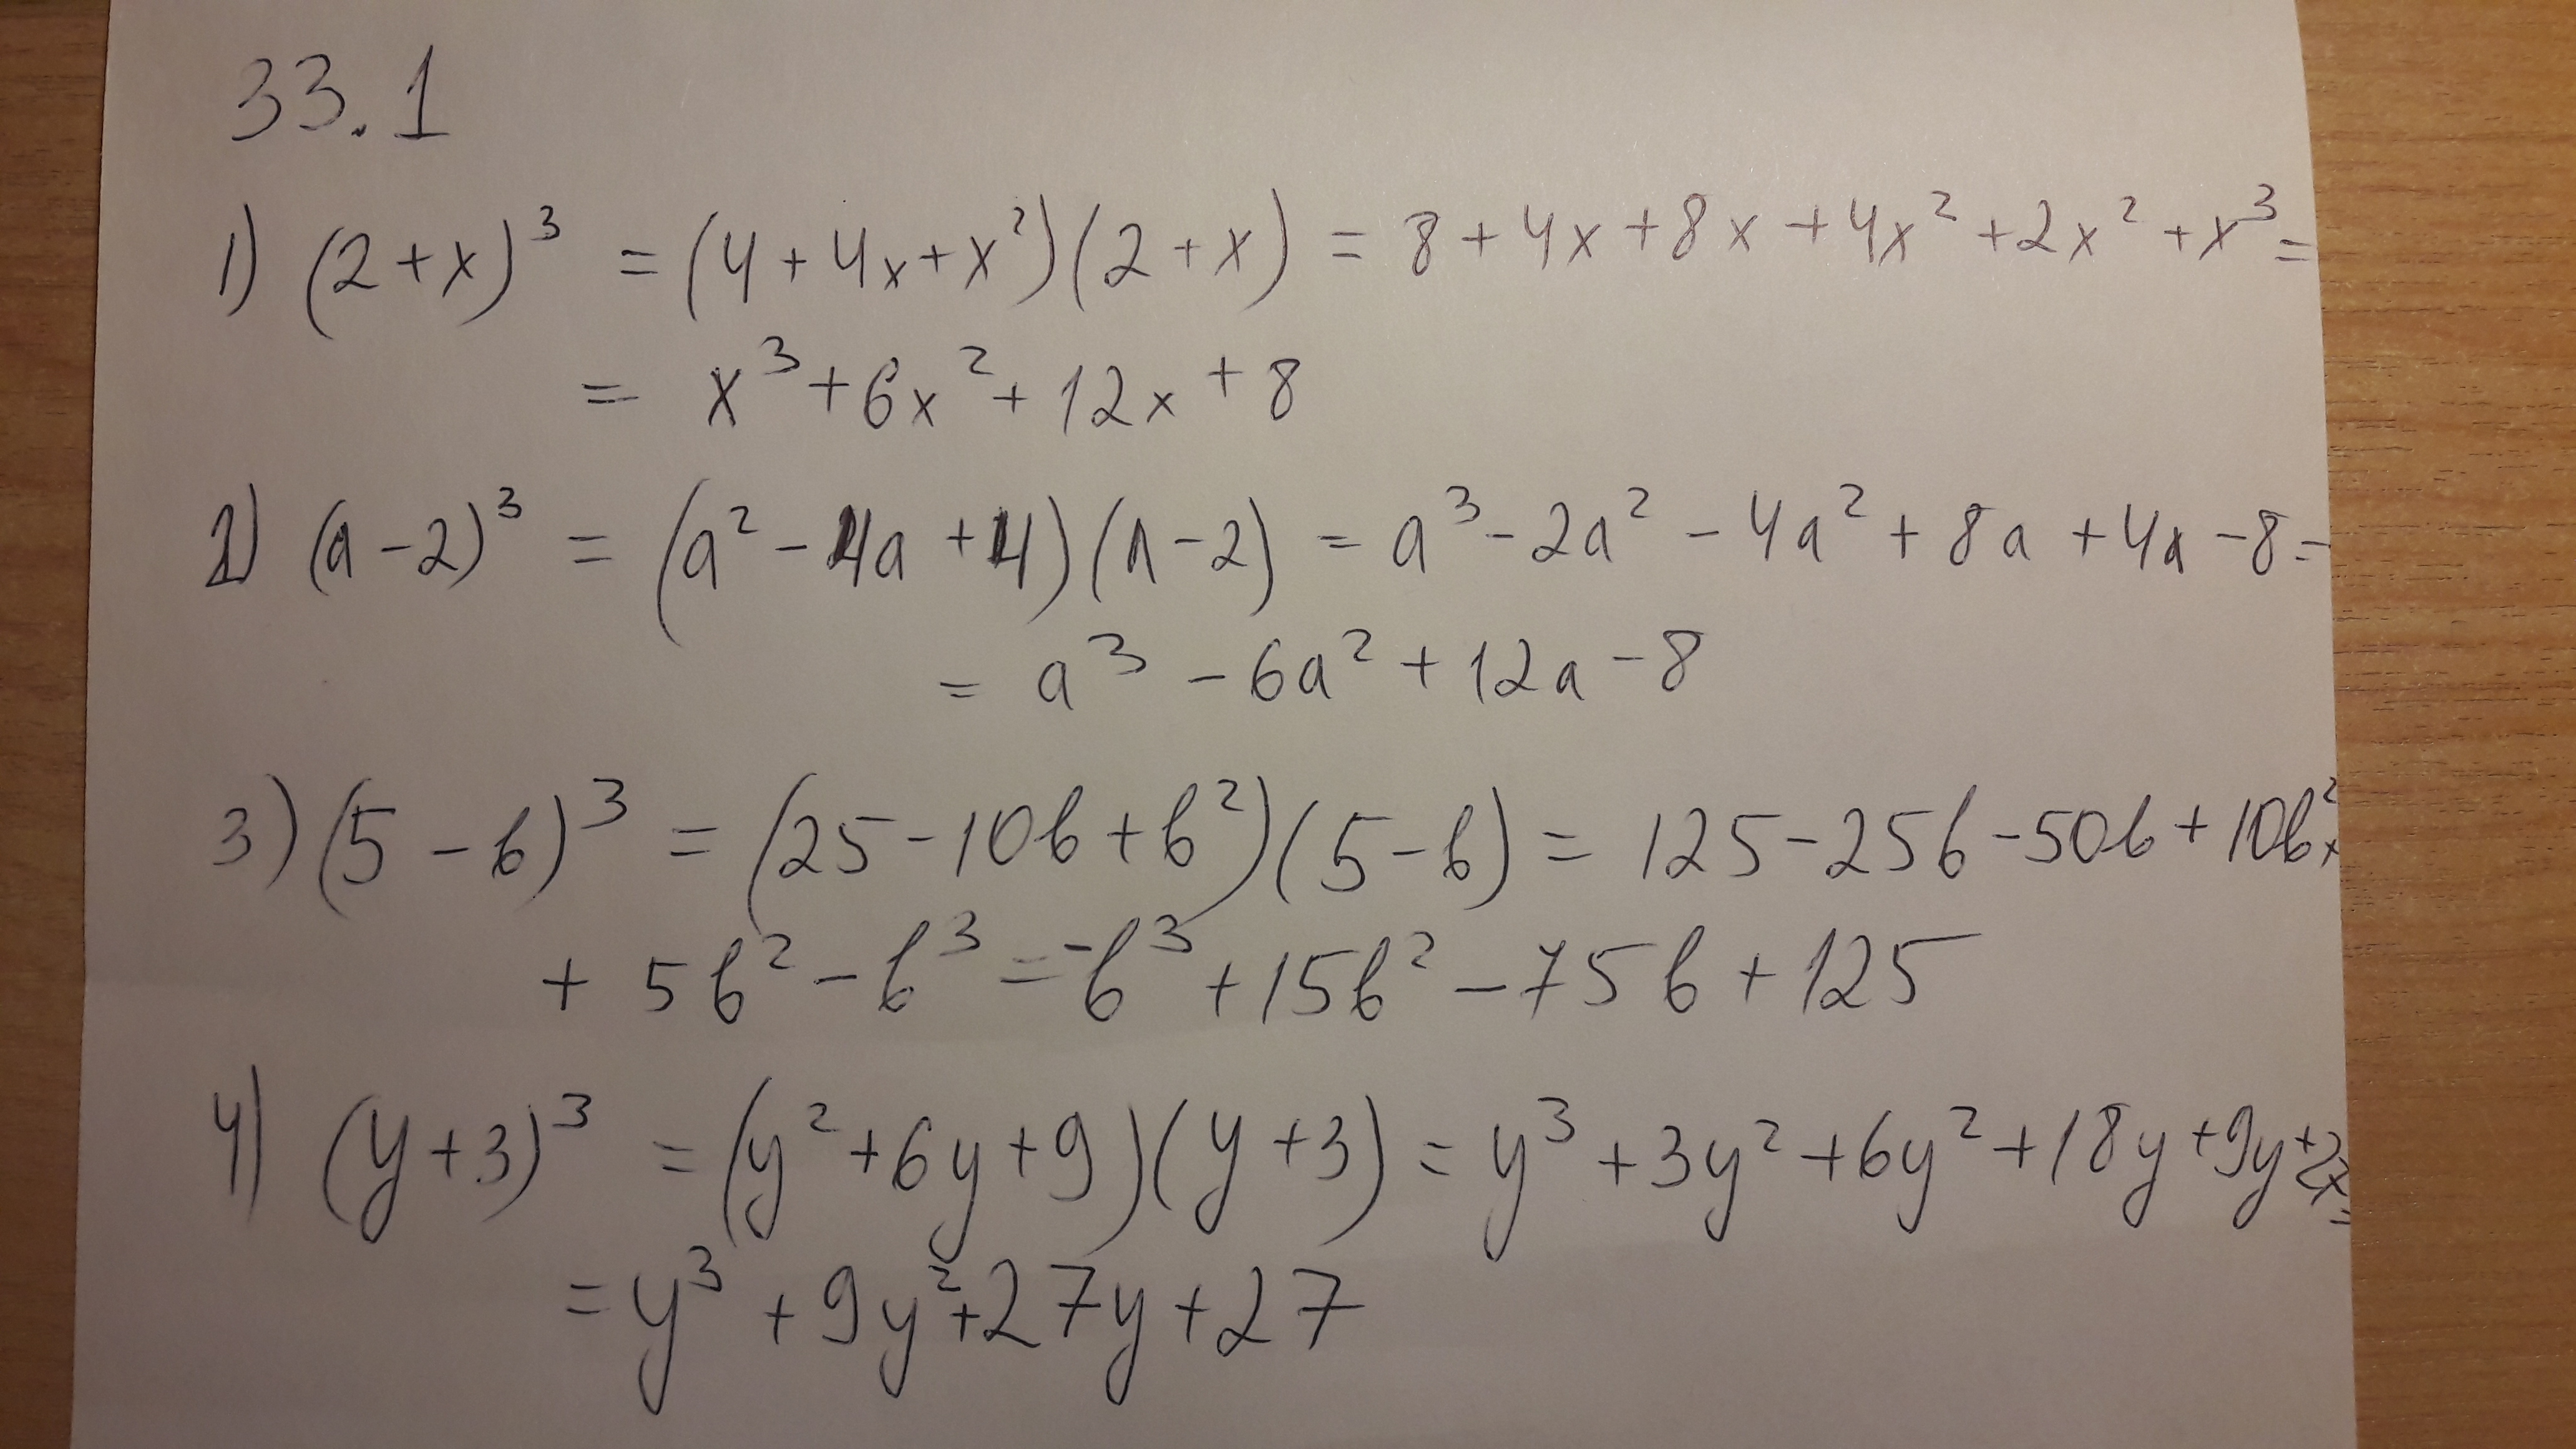 33.1
1) (2+x)³ = (4+4x+x²)(2+x) = 8+4x+8x+4x²+2x²+x³=
= x³+6x²+12x+8
2) (a-2)³ = (a²-4a+4)(a-2) = a³-2a²-4a²+8a+4a-8=
= a³-6a²+12a-8
3) (5-b)³ = (25-10b+b²)(5-b) = 125-25b-50b+10b²+
+ 5b²-b³=-b³+15b²-75b+125
4) (y+3)³ = (y²+6y+9)(y+3) = y³+3y²+6y²+18y+9y+27=
= y³+9y²+27y+27